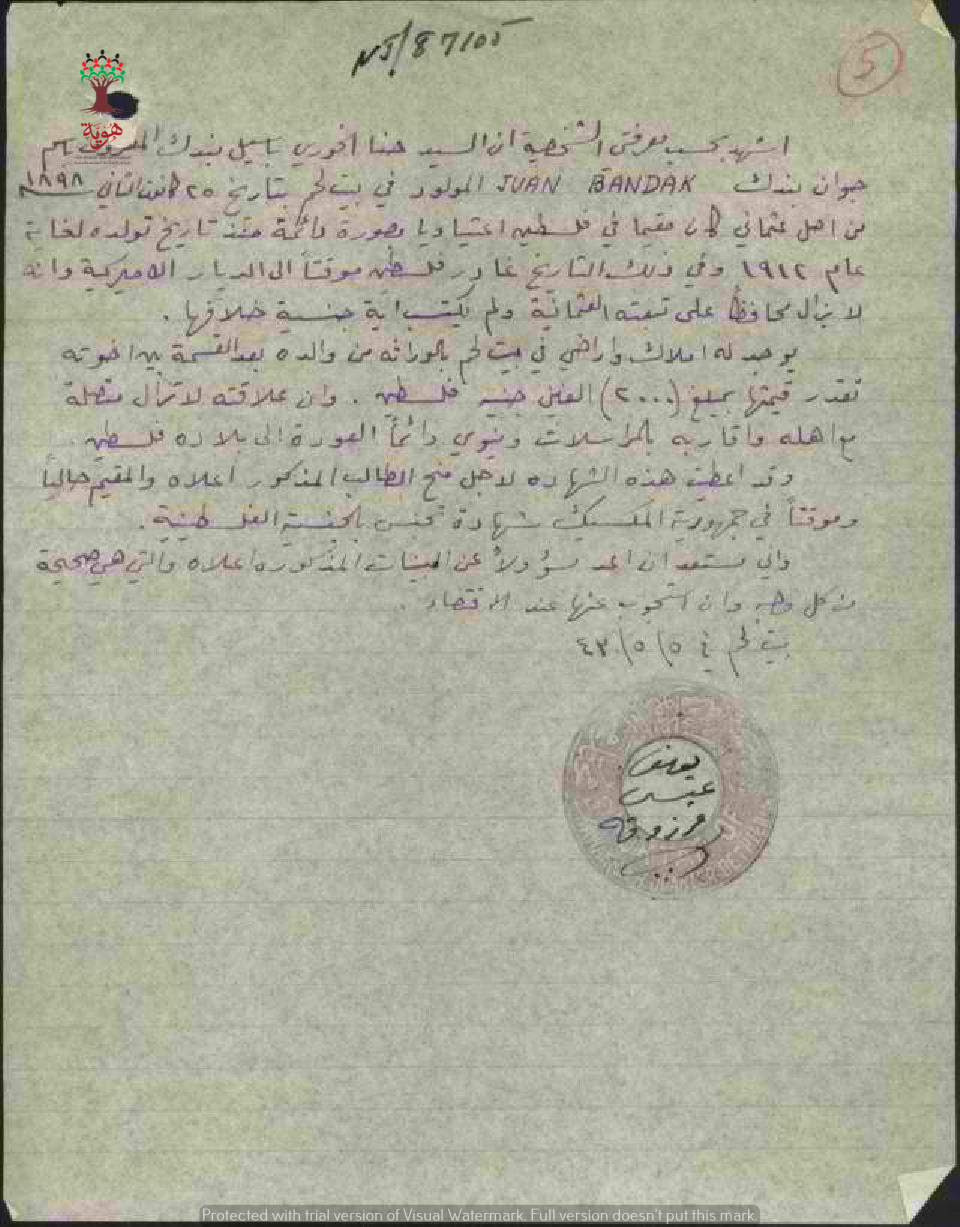 NJ/87105
5
هوية
اشهد بحسب معرفتي الشخصية ان السيد حنا الخوري باسيل بندك المعروف باسم
جوان بندك JUAN BANDAK المولود في بيت لحم بتاريخ ٢٥ كانون الثاني سنة ١٨٩٨
من اصل عثماني كان مقيما في فلسطين اعتياديا بصورة دائمة منذ تاريخ تولده لغاية
عام ١٩١٢ وفي ذلك التاريخ غادر فلسطين موقتاً الى الديار الاميركية وانه
لا يزال محافظاً على تبعته العثمانية ولم يكتسب اية جنسية خلافها .
يوجد له املاك واراضي في بيت لحم بالوراثه من والده بعد القسمة بين اخوته
تقدر قيمتها بمبلغ (٢٠٠٠) الفين جنيه فلسطيني . وان علاقته لا تزال متصلة
مع اهله واقاربه بالمراسلات وينوي دائماً العودة الى بلاده فلسطين .
وقد اعطيت هذه الشهاده لاجل منح الطالب المذكور اعلاه والمقيم حالياً
وموقتاً في جمهورية المكسيك شهادة تجنس بالجنسية الفلسطينية .
واني مستعد ان اعد مسؤولاً عن البينات المذكوره اعلاه والتي هي صحيحة
من كل وجه وان استجوب عنها عند الاقتضاء .
بيت لحم في ٥/٥/٤٣
يوسف
عيسى
مرزوقه
Protected with trial version of Visual Watermark. Full version doesn't put this mark.